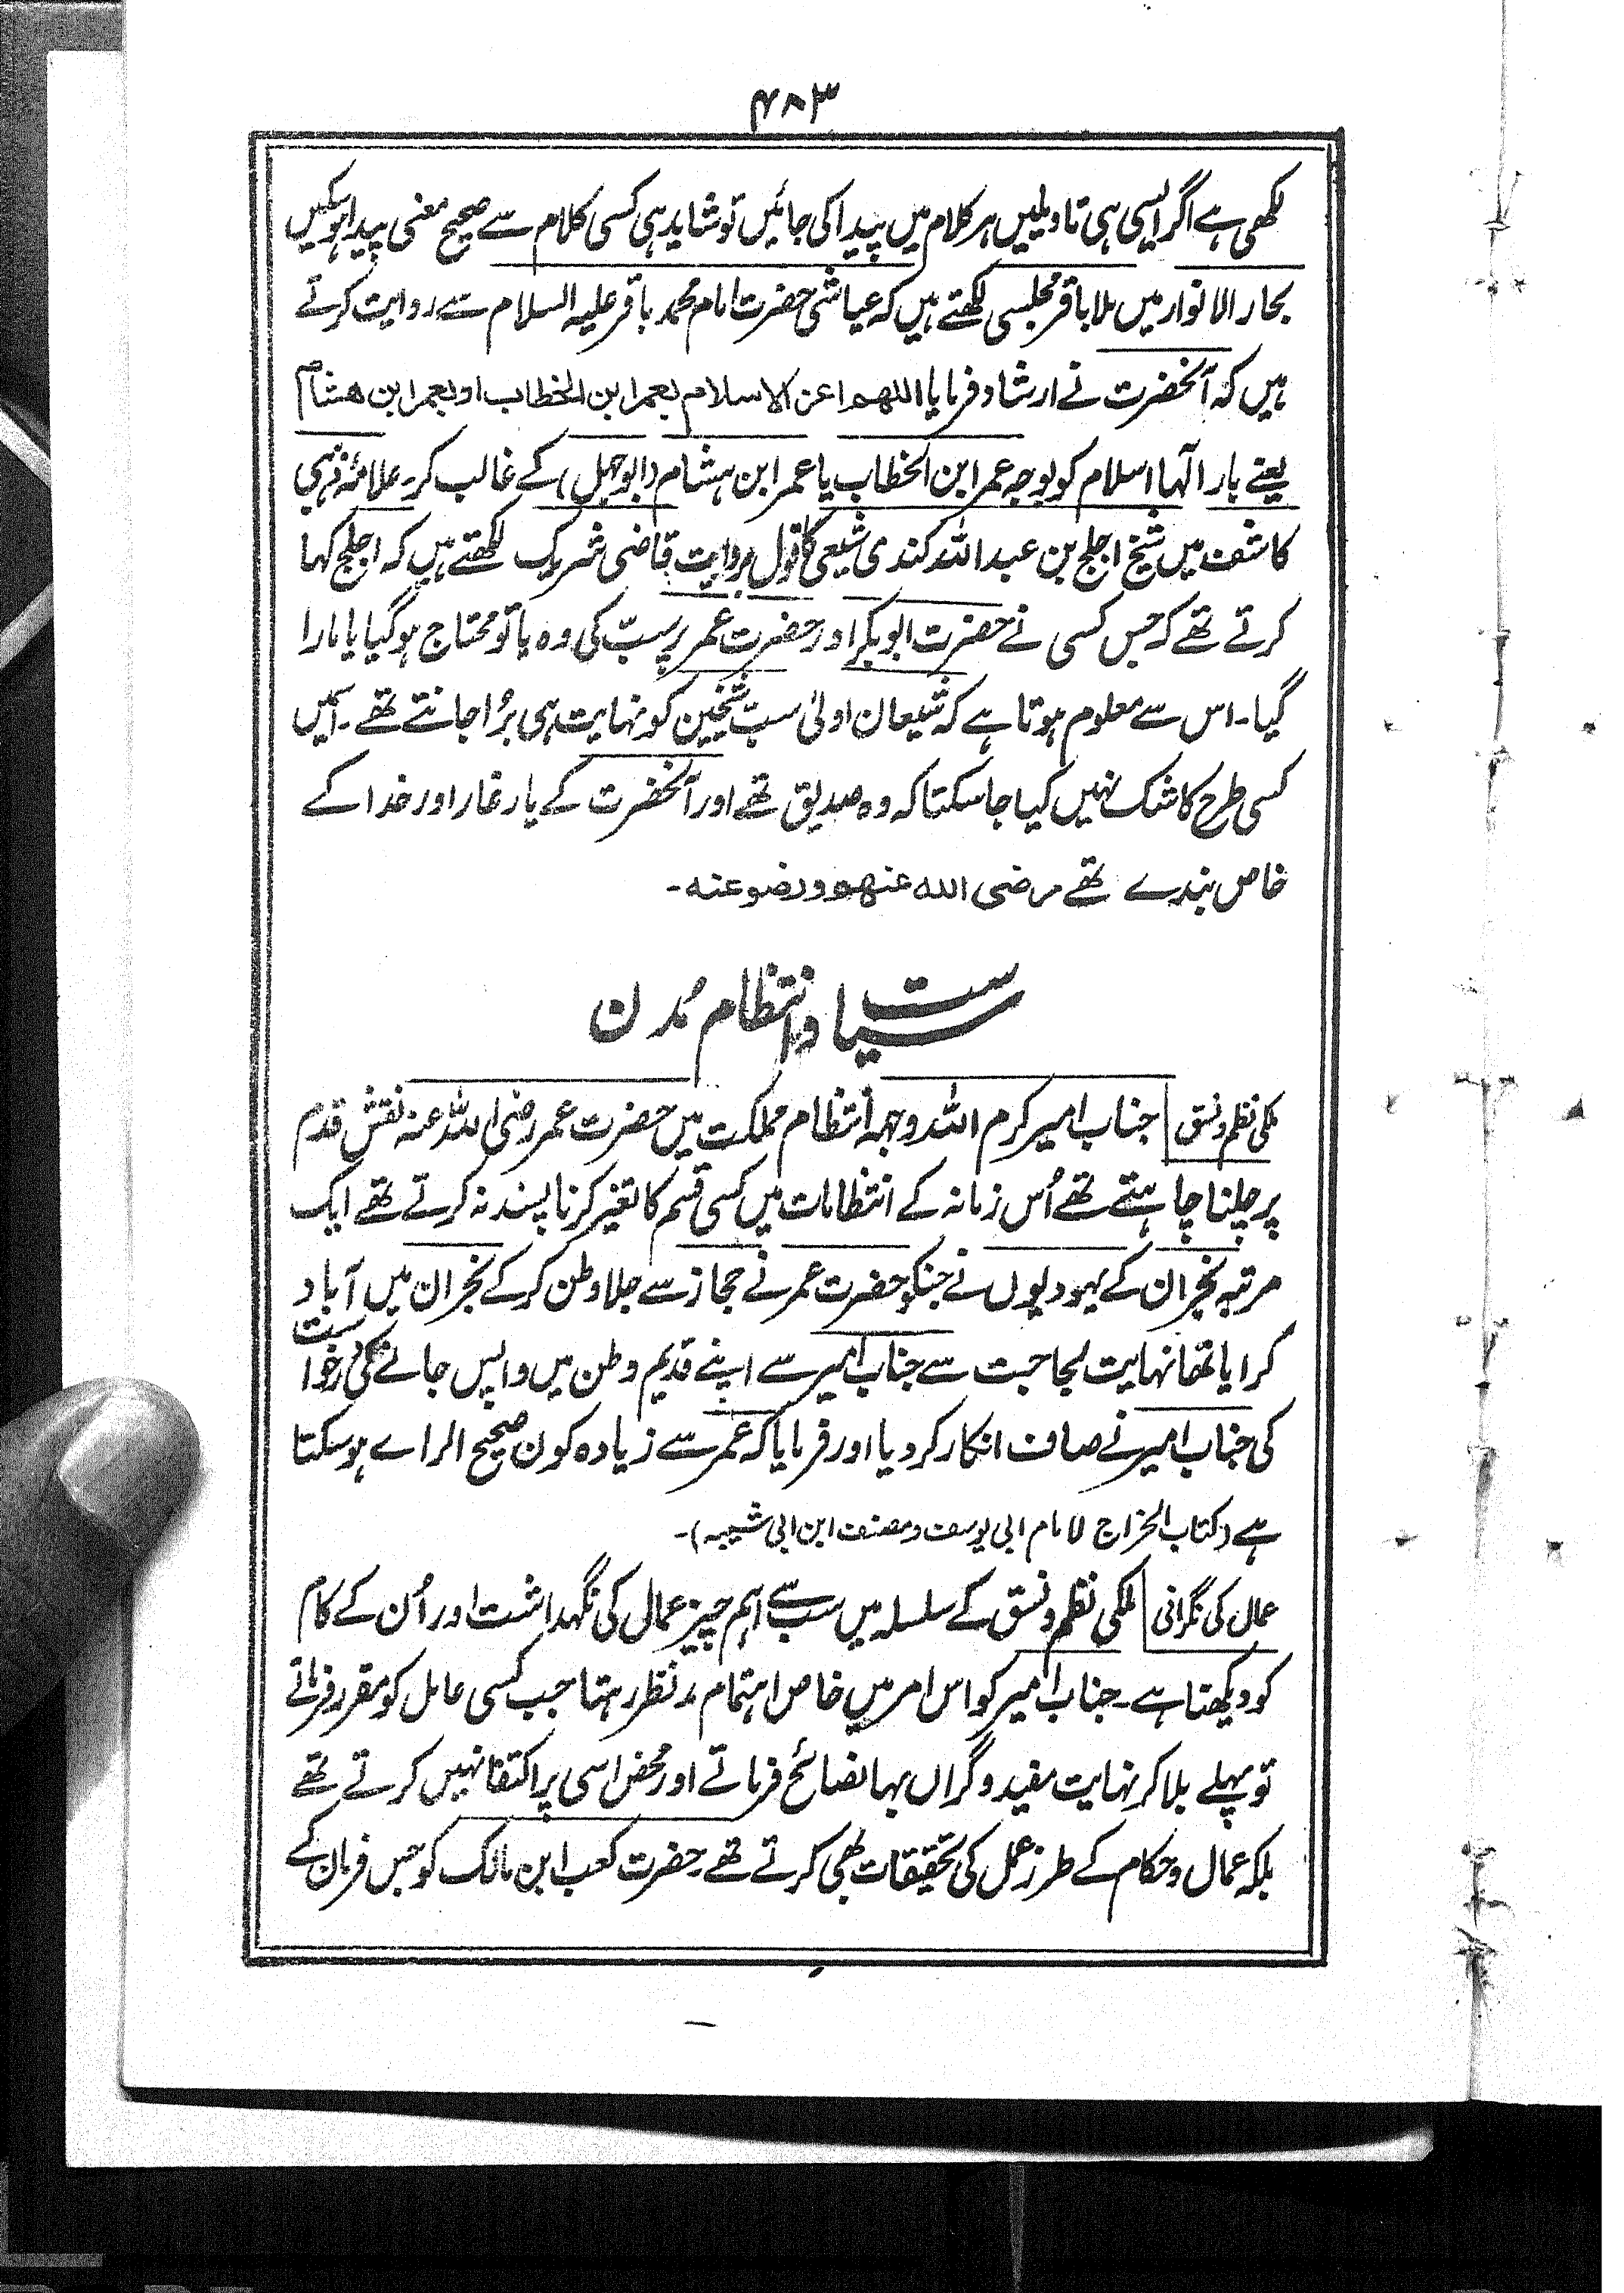 ۴۸۳
لکھی ہے اگر ایسی ہی تاویلیں ہر کلام میں پیدا کی جائیں تو شاید ہی کسی کلام سے صحیح معنی پیدا ہو سکیں
بحار الانوار میں ملا باقر مجلسی لکھتے ہیں کہ عیاشی حضرت امام محمد باقر علیہ السلام سے روایت کرتے
ہیں کہ آنحضرت نے ارشاد فرمایا اللھم اعز الاسلام بعمر ابن الخطاب او بعمر ابن ھشام
یعنے بار الٰہا اسلام کو بوجہ عمر ابن الخطاب یا عمر ابن ہشام (ابو جہل) کے غالب کر۔ علامۂ ذہبی
کاشف میں شیخ اجلح بن عبداللہ کندی شیعی کا قول بروایت قاضی شریک لکھتے ہیں کہ اجلح کہا
کرتے تھے کہ جس کسی نے حضرت ابوبکر اور حضرت عمر پر سبّ کی وہ یا تو محتاج ہو گیا یا مارا
گیا۔ اس سے معلوم ہوتا ہے کہ شیعان اولیٰ سبّ شیخین کو نہایت ہی بُرا جانتے تھے۔ اسمیں
کسی طرح کا شک نہیں کیا جا سکتا کہ وہ صدیق تھے اور آنحضرت کے یار غار اور خدا کے
خاص بندے تھے رضی اللہ عنھم ورضو عنہ۔
سیاست و انتظام مُدن
ملکی نظم و نسق | جناب امیر کرم اللہ وجہہ انتظام مملکت میں حضرت عمر رضی اللہ عنہ نقش قدم
پر چلنا چاہتے تھے اُس زمانہ کے انتظامات میں کسی قسم کا تغیر کرنا پسند نہ کرتے تھے ایک
مرتبہ نجران کے یہودیوں نے جنکو حضرت عمر نے حجاز سے جلاوطن کر کے نجران میں آباد
کرایا تھا نہایت لجاجت سے جناب امیر سے اپنے قدیم وطن میں واپس جانے کی درخواست
کی جناب امیر نے صاف انکار کر دیا اور فرمایا کہ عمر سے زیادہ کون صحیح الراے ہو سکتا
ہے (کتاب الخراج لامام ابی یوسف و مصنف ابن ابی شیبہ)۔
عمال کی نگرانی | ملکی نظم و نسق کے سلسلہ میں سب سے اہم چیز عمال کی نگہداشت اور اُن کے کام
کو دیکھنا ہے۔ جناب امیر کو اس امر میں خاص اہتمام مد نظر رہتا جب کسی عامل کو مقرر فرماتے
تو پہلے بلا کر نہایت مفید و گراں بہا نصائح فرماتے اور محض اسی پر اکتفا نہیں کرتے تھے
بلکہ عمال و حکام کے طرز عمل کی تحقیقات بھی کرتے تھے۔ حضرت کعب ابن مالک کو جس فرمان کے